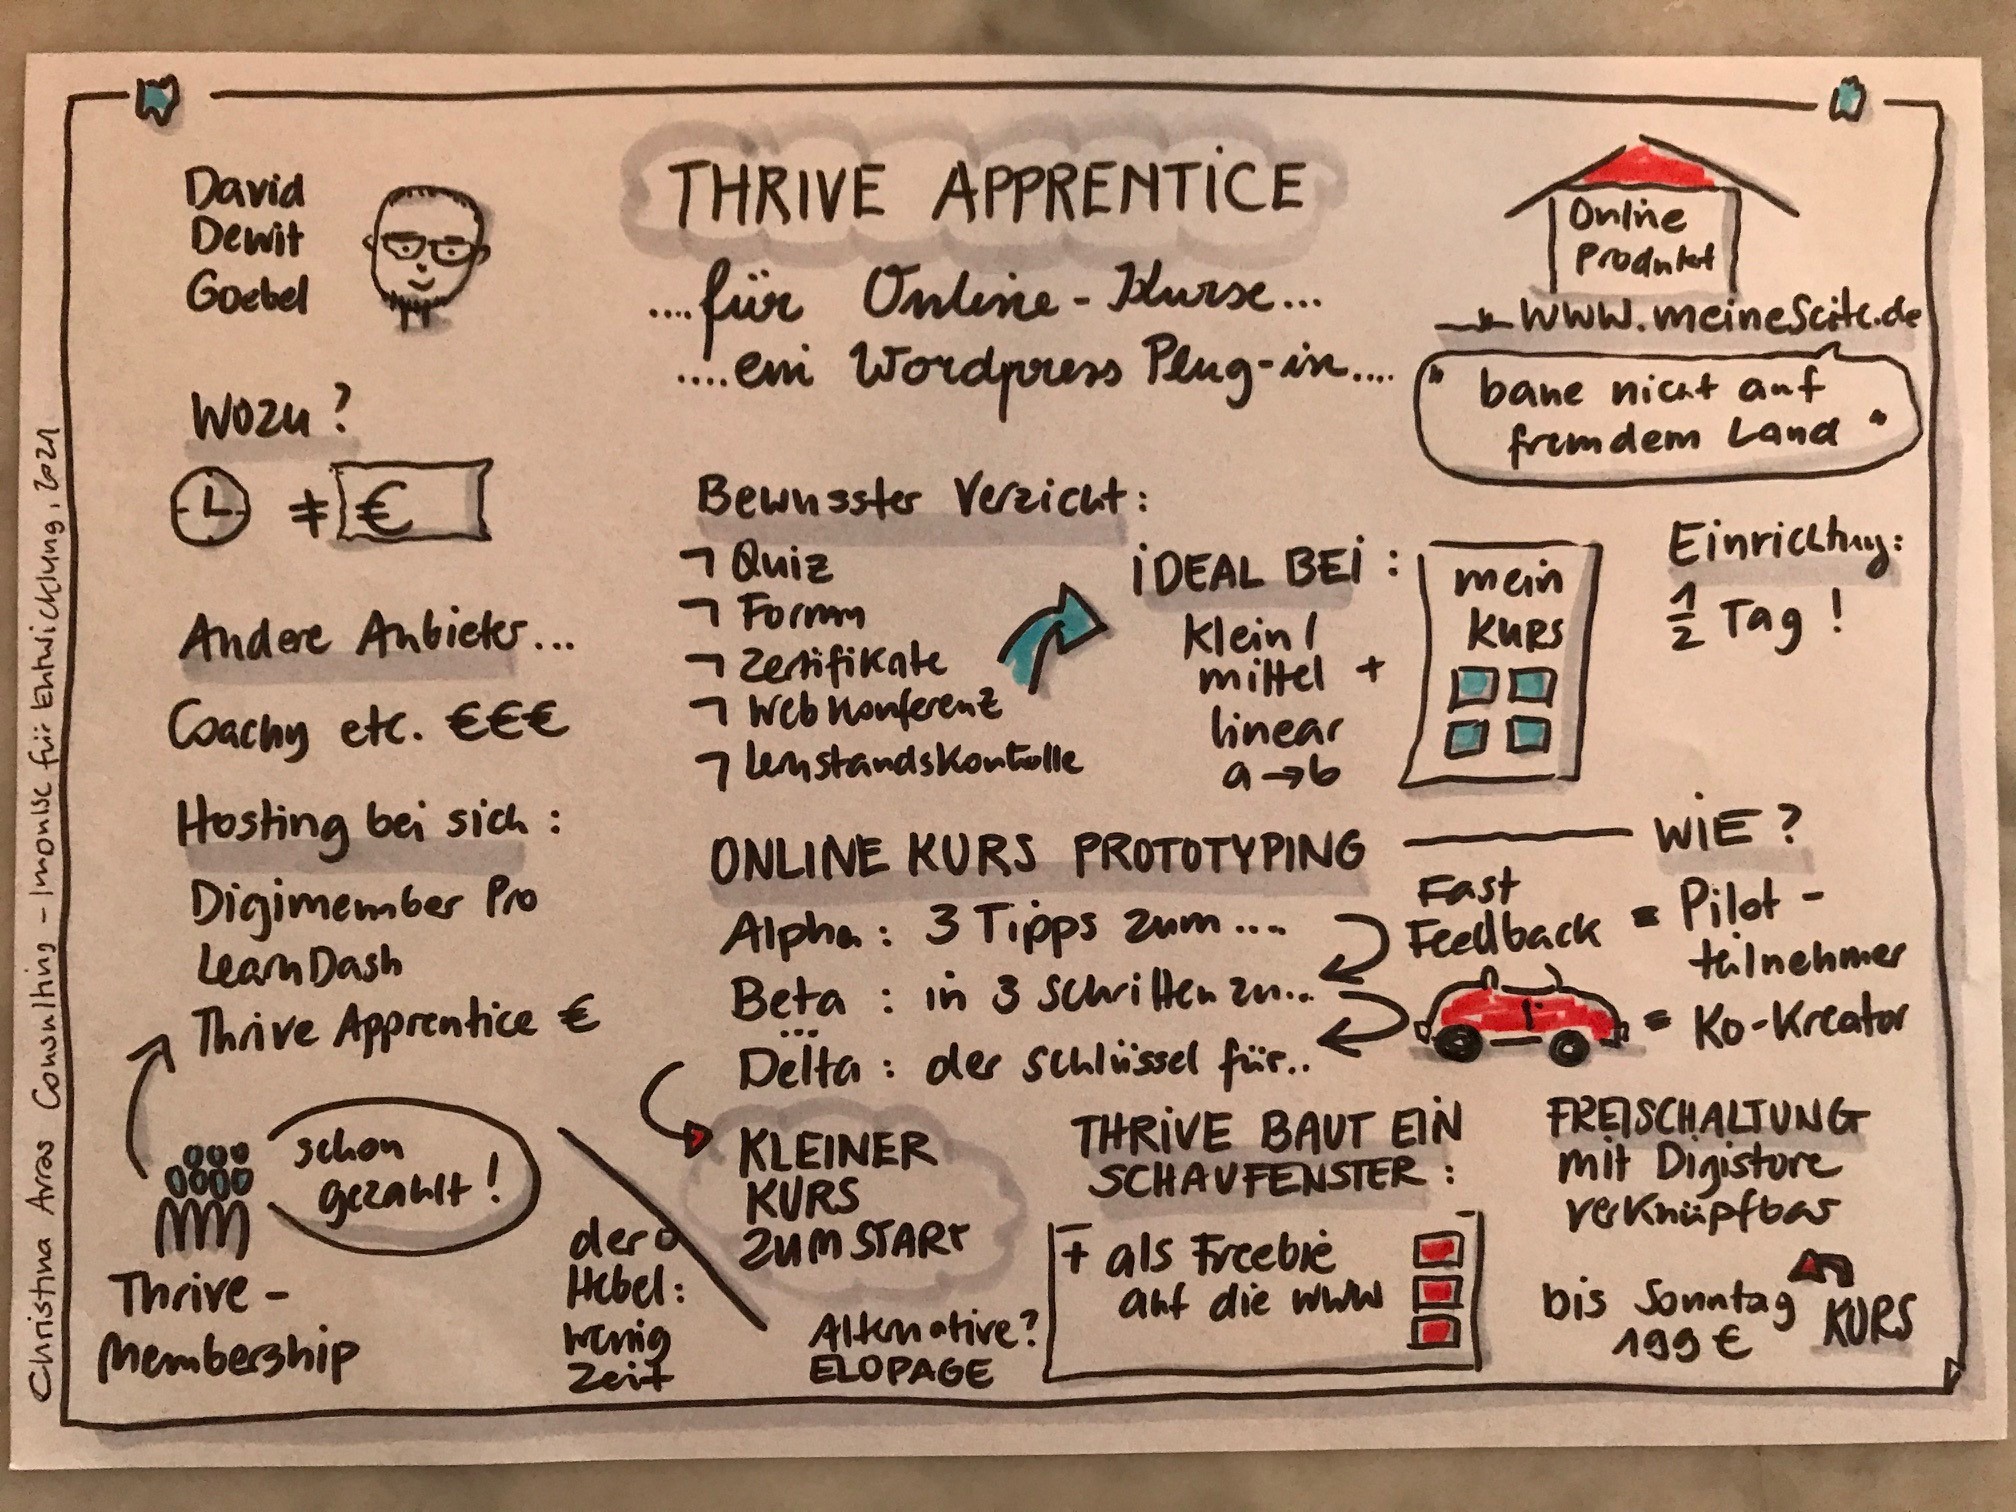 THRIVE APPRENTICE
....für Online-Kurse...
....ein Wordpress Plug-in....
David
Dewit
Goebel
Online
Produkt
www.meineSeite.de
"baue nicht auf
fremdem Land"
Wozu?
≠ €
Andere Anbieter...
Coachy etc. €€€
Hosting bei sich:
Digimember Pro
LearnDash
Thrive Apprentice €
schon
gezahlt!
Thrive-
Membership
Bewusster Verzicht:
¬ Quiz
¬ Forum
¬ Zertifikate
¬ Webkonferenz
¬ Lernstandskontrolle
iDEAL BEi:
klein/
mittel +
linear
a → b
mein
KURS
Einrichtung:
1/2 Tag!
ONLINE KURS PROTOTYPING
Alpha: 3 Tipps zum....
Beta: in 3 Schritten zu...
...
Delta: der Schlüssel für..
WiE?
Fast
Feedback
= Pilot-
teilnehmer
= Ko-Kreator
der
Hebel:
wenig
Zeit
KLEINER
KURS
ZUM START
Alternative?
ELOPAGE
THRiVE BAUT EiN
SCHAUFENSTER:
+ als Freebie
auf die www
FREISCHALTUNG
mit Digistore
verknüpfbar
bis Sonntag
199 €
KURS
Christina Aras Consulting - Impulse für Entwicklung, 2021